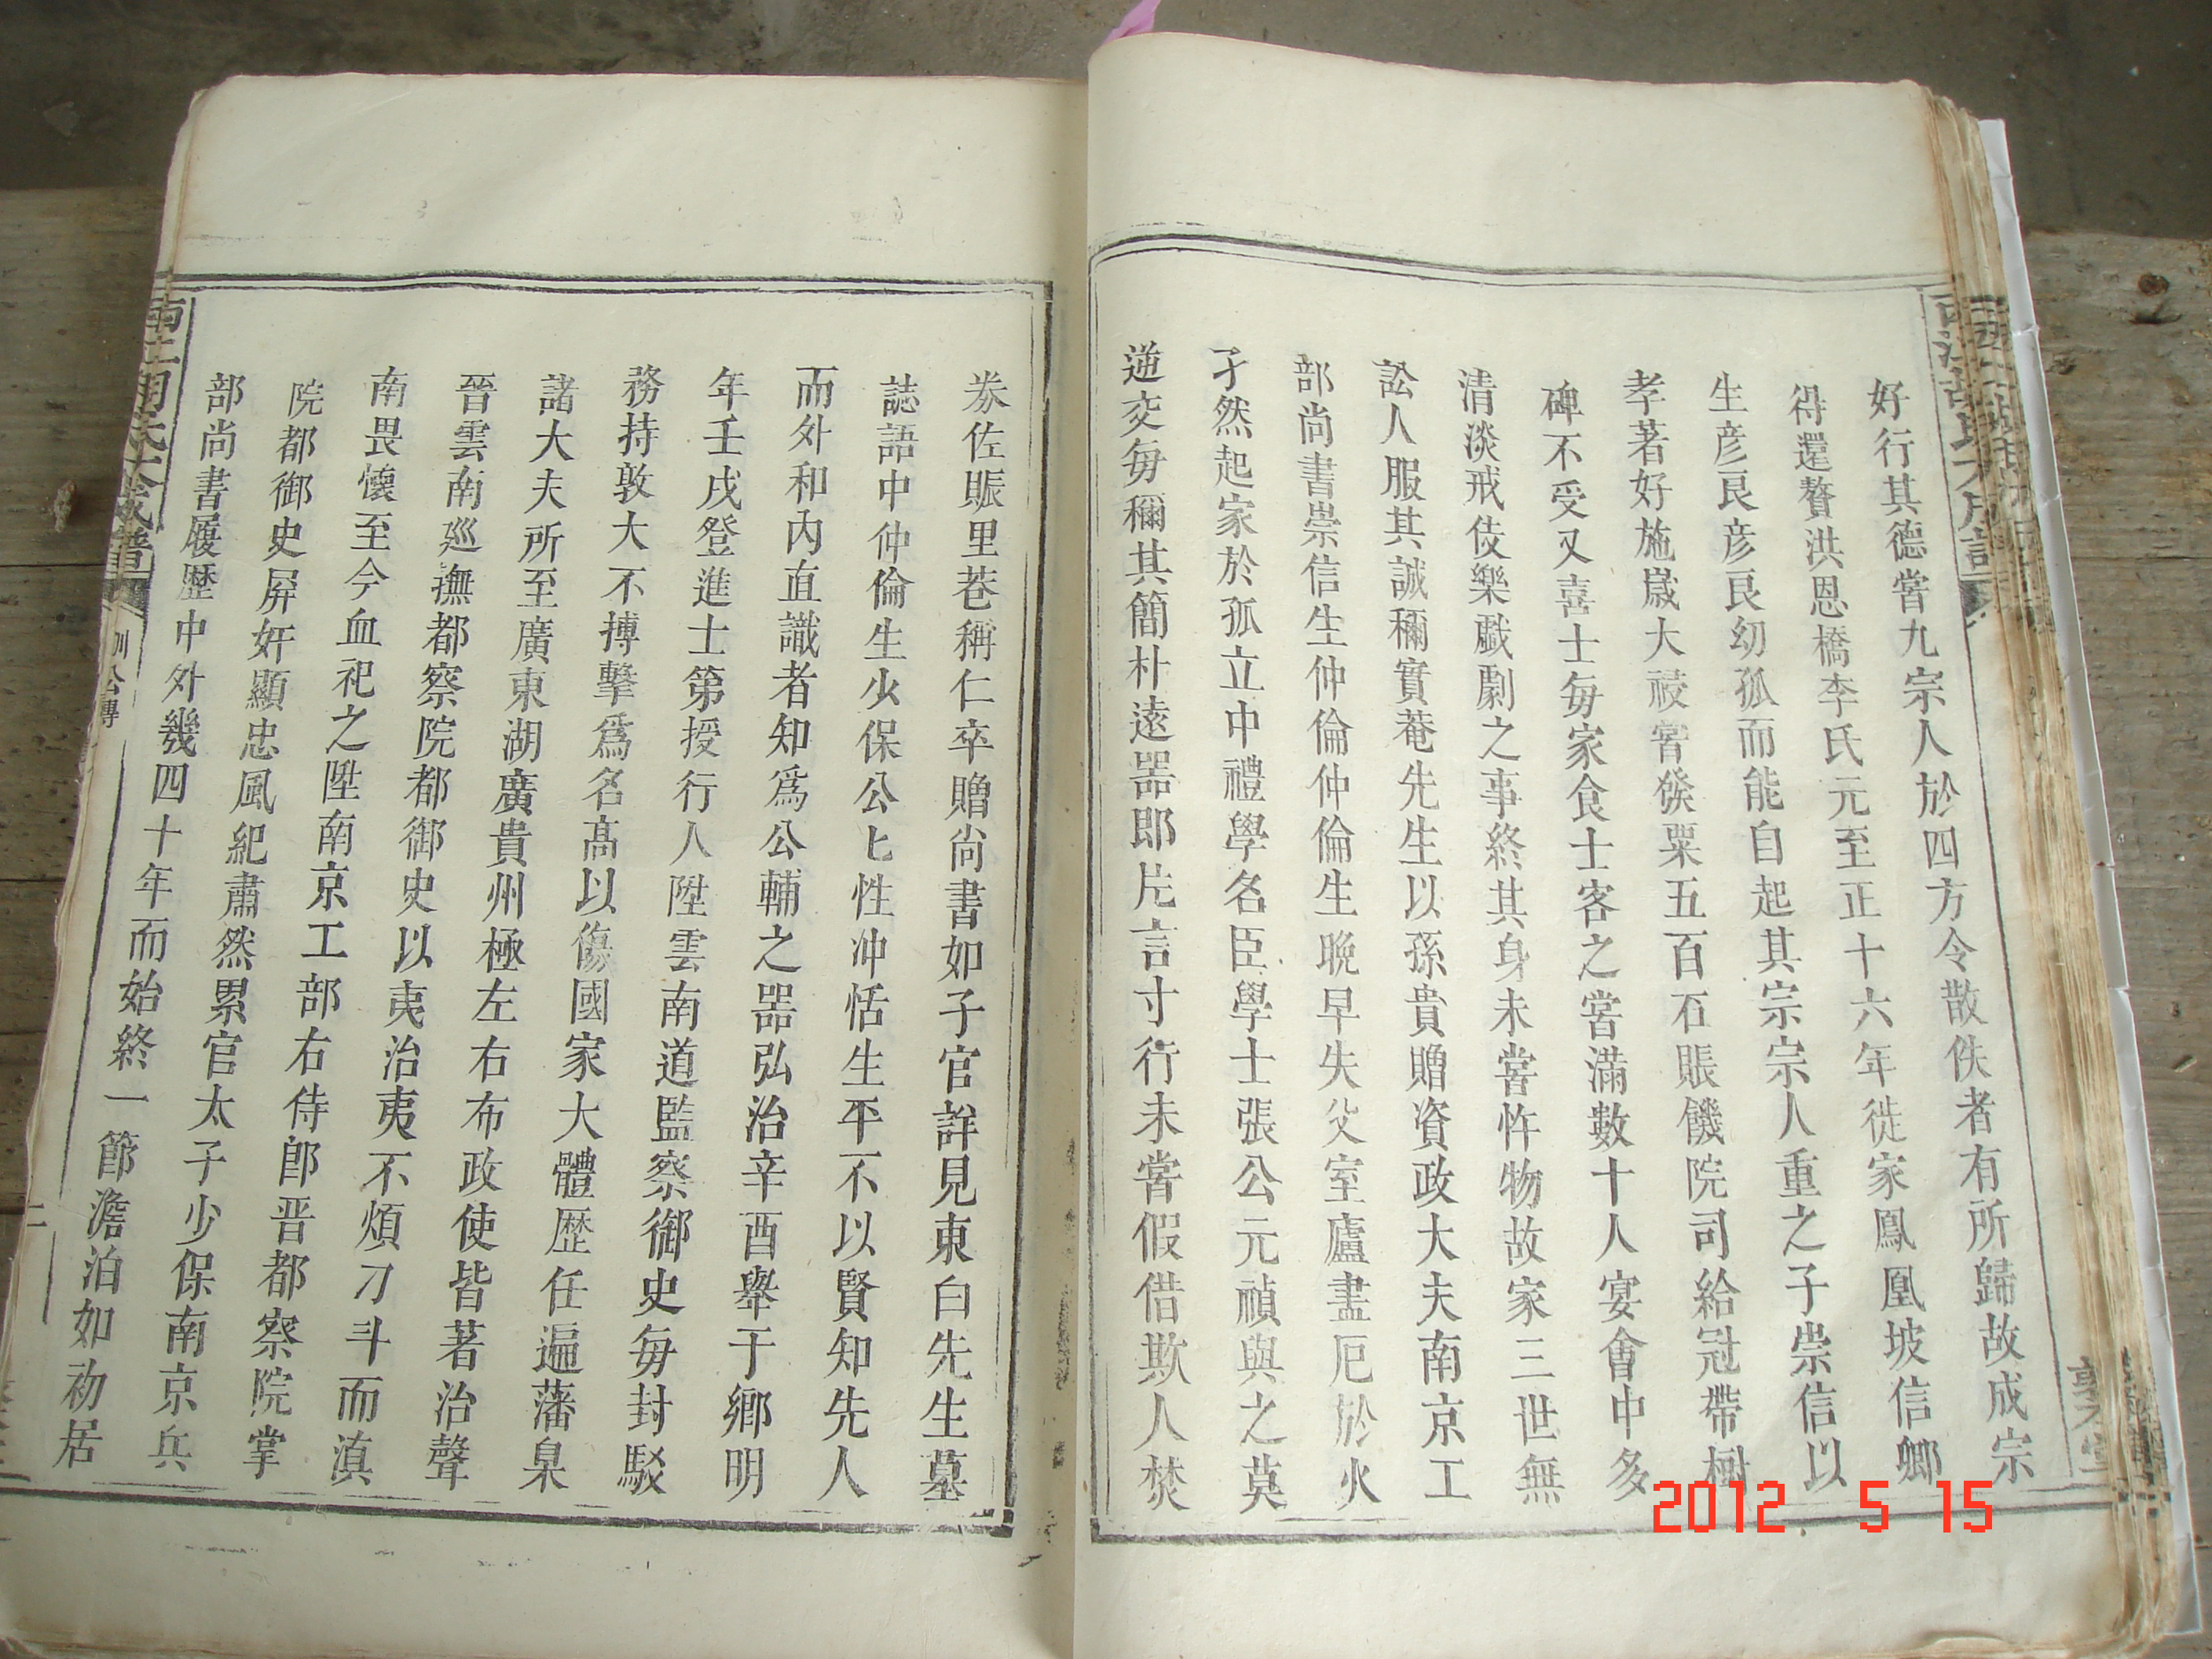 好行其德嘗九宗人於四方令散佚者有所歸故成宗
得還贅洪恩橋李氏元至正十六年徙家鳳凰坡信鄉
生彦良彦良幼孤而能自起其宗宗人重之子崇信以
孝著好施嵗大祲嘗發粟五百石賬饑院司給冠帶樹
碑不受又喜士每家食士客之嘗滿數十人宴會中多
清淡戒伎樂戯劇之事終其身未嘗忤物故家三世無
訟人服其誠稱實菴先生以孫貴贈資政大夫南京工
部尚書崇信生仲倫仲倫生晚早失父室廬盡厄於火
孑然起家於孤立中禮學名臣學士張公元禎與之莫
逆交每稱其簡朴遠器即片言寸行未嘗假借欺人焚
券佐賑里巷稱仁卒贈尚書如子官詳見東白先生墓
誌語中仲倫生少保公匕性冲恬生平不以賢知先人
而外和内直識者知爲公輔之器弘治辛酉舉于鄉明
年壬戌登進士第授行人陞雲南道監察御史每封駁
務持敦大不搏擊爲名高以傷國家大體歴任遍藩臬
諸大夫所至廣東湖廣貴州極左右布政使皆著治聲
晉雲南廵撫都察院都御史以夷治夷不煩刁斗而滇
南畏懷至今血祀之陞南京工部右侍郎晋都察院掌
院都御史屏奸顯忠風紀肅然累官太子少保南京兵
部尚書履歴中外幾四十年而始終一節澹泊如初居
公傳
2012 5 15